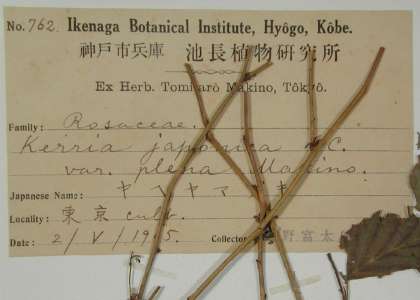 No. 762. Ikenaga Botanical Institute, Hyôgo, Kôbe.
神戸市兵庫 池長植物研究所
Ex Herb. Tomitarô Makino, Tôkyô.
Family: Rosaceae.
Kerria japonica DC.
var. plena Makino.
Japanese Name: ヤヘヤマ キ
Locality: 東京 cult.
Date: 2/V/1915. Collector 野富太